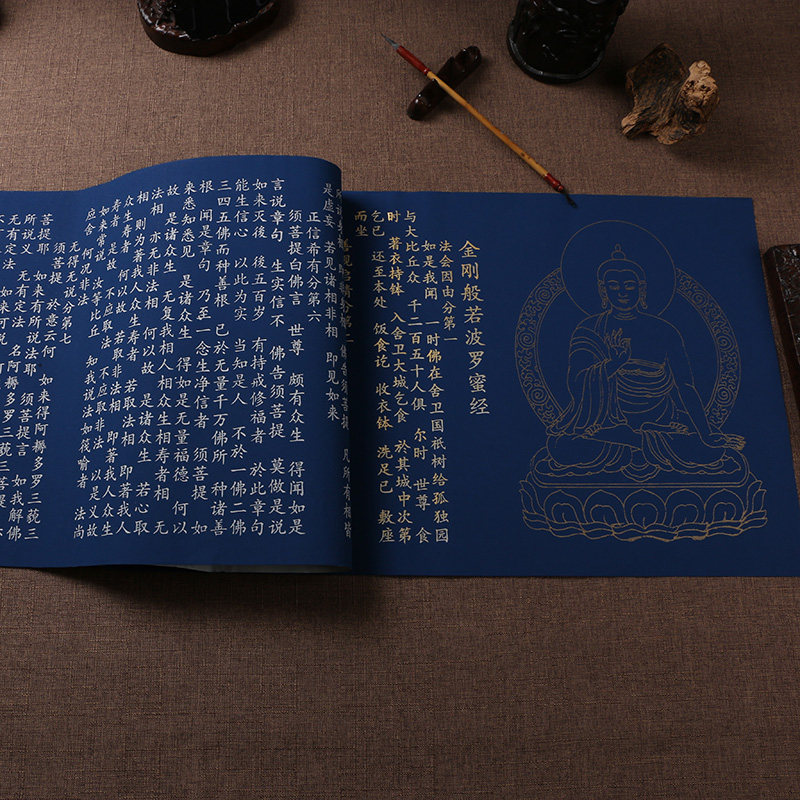 金刚般若波罗蜜经
法会因由分第一
如是我闻 一时佛在舍卫国祇树给孤独园
与大比丘众 千二百五十人俱 尔时 世尊 食
时 著衣持钵 入舍卫大城乞食 於其城中次第
乞已 还至本处 饭食讫 收衣钵 洗足已 敷座
而坐
佛告须菩提 凡所有相皆
是虚妄 若见诸相非相 即见如来
正信希有分第六
须菩提白佛言 世尊 颇有众生 得闻如是
言说章句 生实信不 佛告须菩提 莫做是说
如来灭後 後五百岁 有持戒修福者 於此章句
能生信心 以此为实 当知是人 不於一佛二佛
三四五佛而种善根 已於无量千万佛所 种诸善
根 闻是章句 乃至一念生净信者 须菩提 如
来悉知悉见 是诸众生 得如是无量福德 何以
故 是诸众生 无复我相人相众生相寿者相 无
法相 亦无非法相 何以故 是诸众生 若心取
相 则为著我人众生寿者 若取法相 即著我人
众生寿者 何以故 若取非法相 即著我人众生
寿者 是故 不应取法 不应取非法 以是义故
如来常说 汝等比丘 知我说法如筏喻者 法尚
应舍 何况非法
无得无说分第七
须菩提 於意云何 如来得阿耨多罗三藐三
菩提耶 如来有所说法耶 须菩提言 如我解佛
所说义 无有定法 名阿耨多罗三藐三菩提
无有定法 如来可说